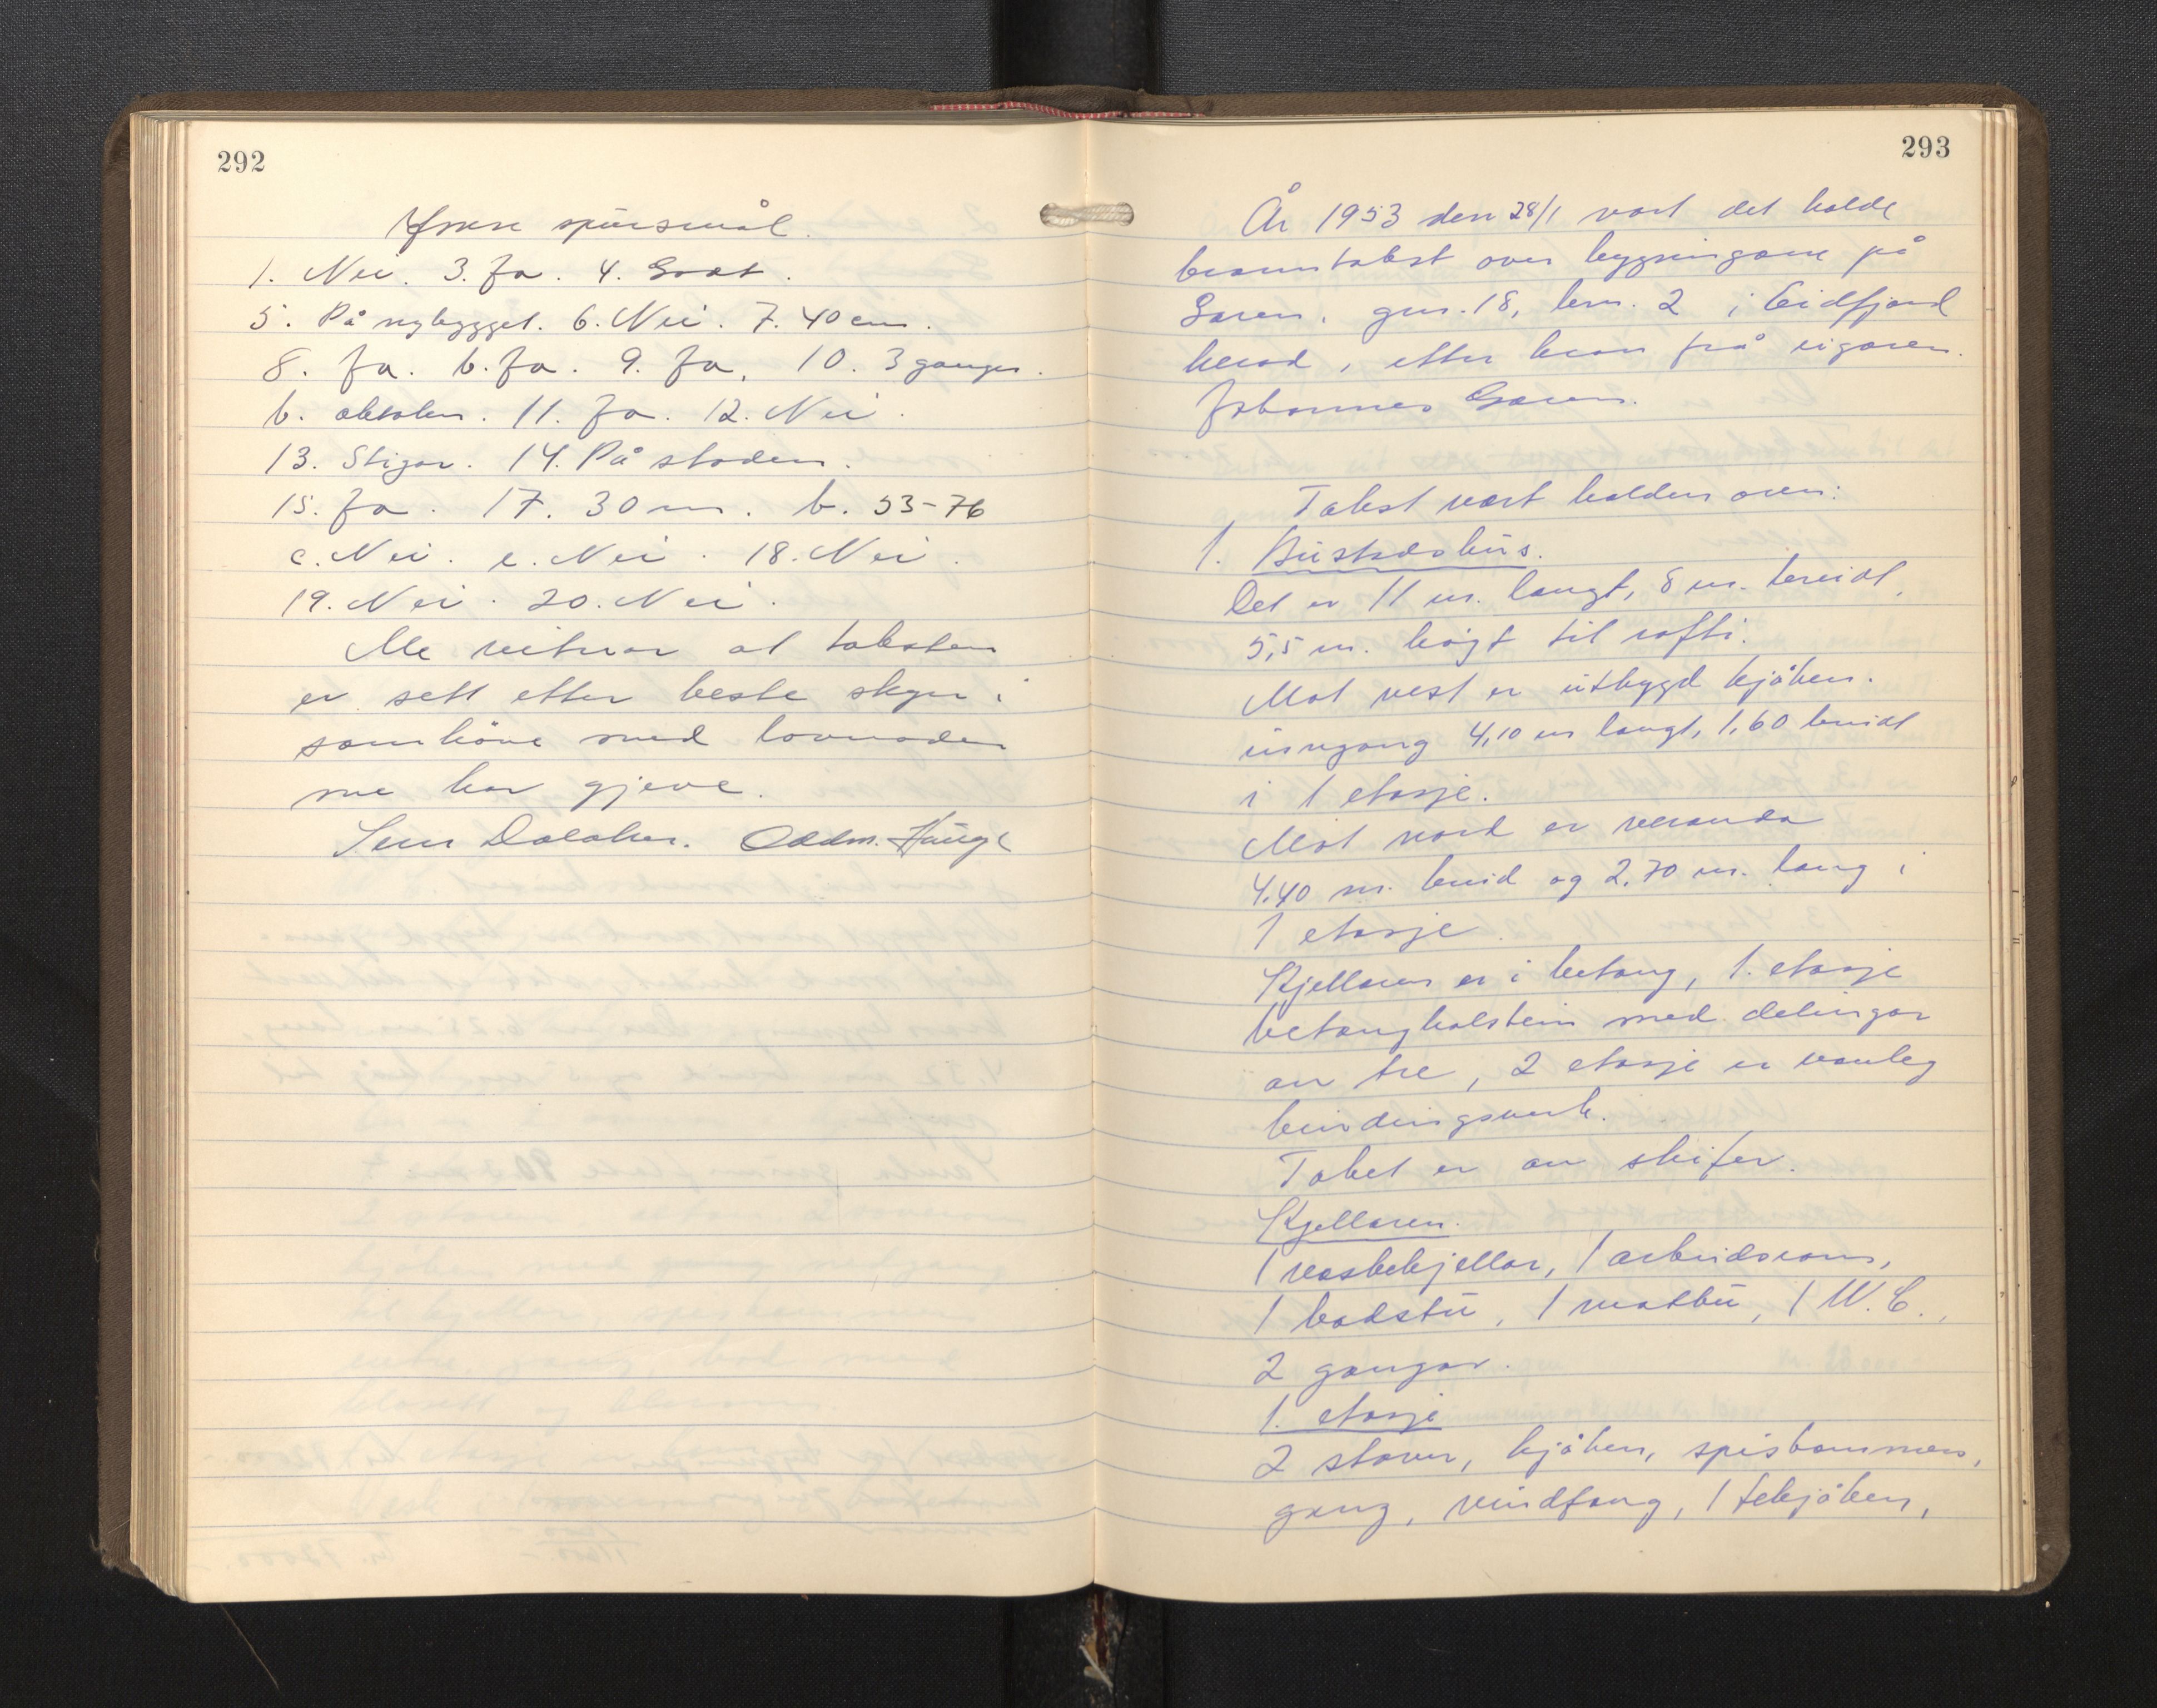 292
Ymse spursmål.
1. Nei. 3. Ja. 4. Godt.
5. På nybygget. 6. Nei. 7. 40 cm.
8. Ja. b. Ja. 9. Ja. 10. 3 ganger.
b. oktober. 11. Ja. 12. Nei.
13. Stigar. 14. På staden.
15. Ja. 17. 30 m. b. 53-76
c. Nei. e. Nei. 18. Nei.
19. Nei. 20. Nei.
Me vitnar at taksten
er sett etter beste skyn i
samhöve med lovnaden
me har gjeve.
Dalaker. Oddm. Hauge
293
År 1953 den 28/1 vart det halde
branntakst over bygningane på
Garen, gnr. 18, brn. 2 i Eidfjord
herad, etter krav frå eigaren
Johannes Garen.
Takst vart halden over:
1. Bustadshus.
Det er 11 m. langt, 8 m. breidt,
5,5 m. högt til rafti.
Mot vest er utbygd kjöken-
inngang 4,10 m langt, 1,60 breidt
i 1 etasje.
Mot nord er veranda
4.40 m. breid og 2.70 m. lang i
1 etasje.
Kjellaren er i betong, 1. etasje
betongholstein med delingar
av tre, 2 etasje er vanleg
bindingsverk.
Taket er av skifer.
Kjellaren.
1 vaskekjellar, 1 arbeidsrom,
1 badstu, 1 matbu, 1 W.C.,
2 gangar.
1. etasje
2 stover, kjöken, spiskammers,
gang, vindfang, 1 tekjöken,